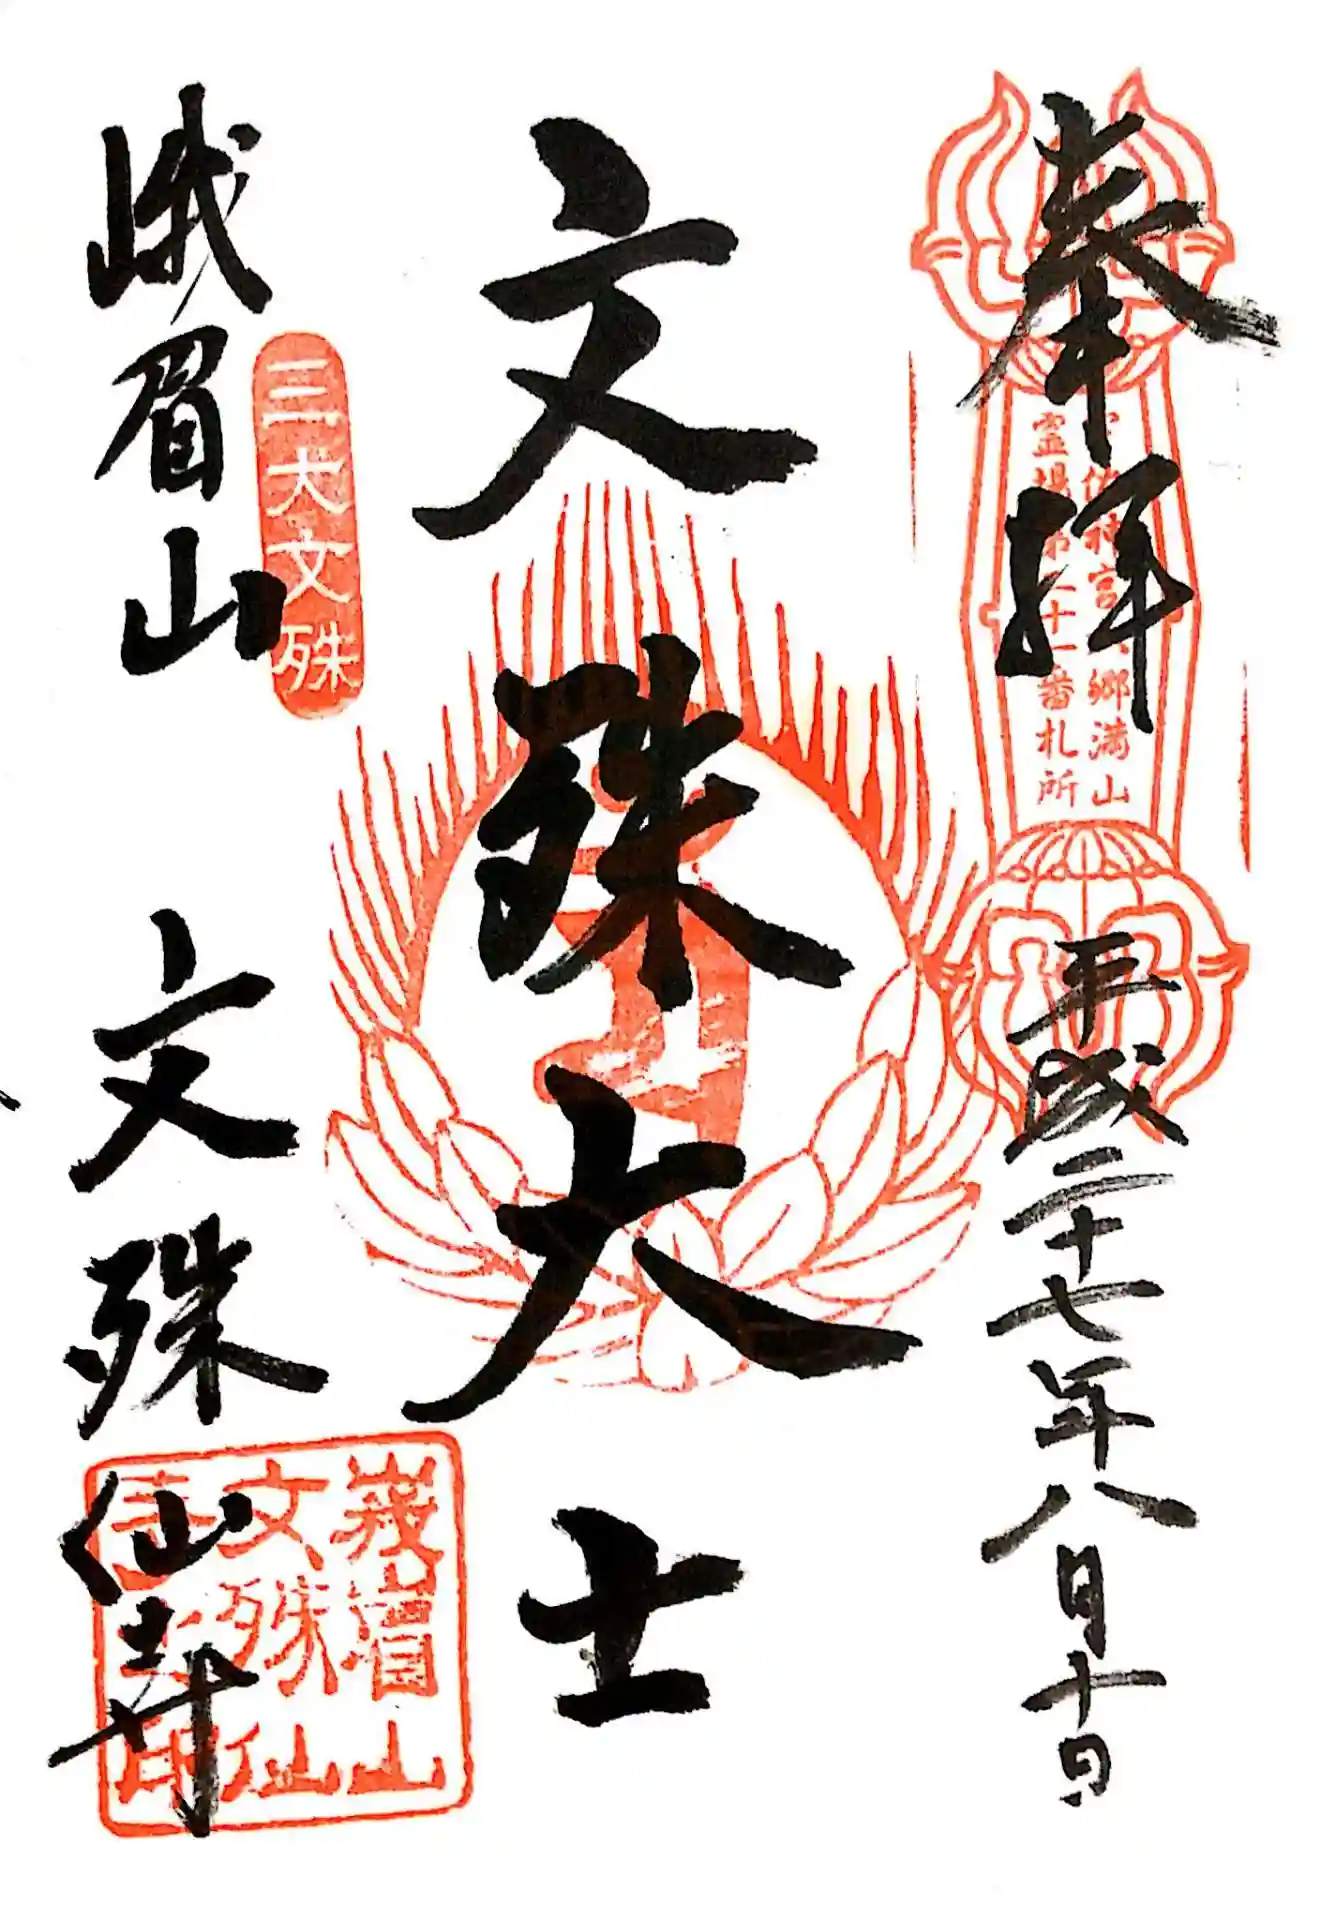 奉拝
平成二十七年八月十日
宇佑神宮六郷満山
霊場第二十一番札所
文殊大士
三大文殊
峨眉山
文殊仙寺
峩嵋山
文殊仙
寺之印